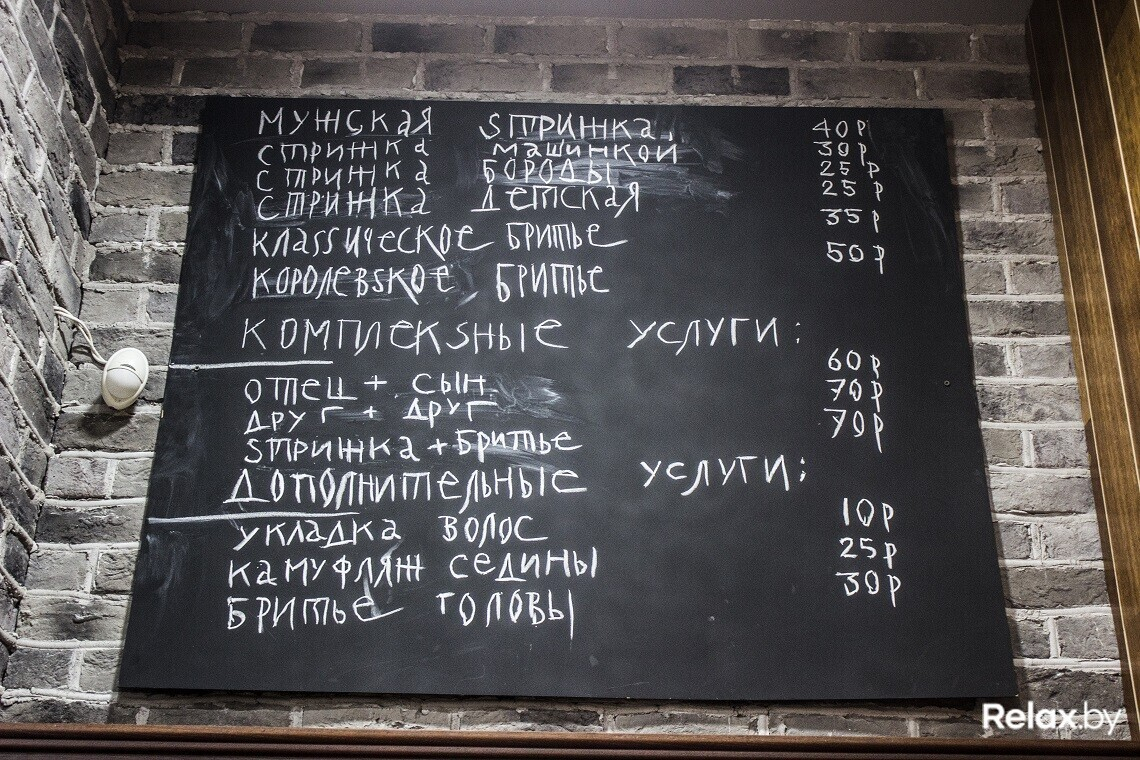 МУЖСКАЯ SТРИЖКА 40Р
СТРИЖКА МАШИНКОЙ 30Р
СТРИЖКА БОРОДЫ 25Р
СТРИЖКА ДЕТСКАЯ 25Р
КЛАSSИЧЕСКОЕ БРИТЬЕ 35Р
КОРОЛЕВSКОЕ БРИТЬЕ 50Р
КОМПЛЕКSНЫЕ УСЛУГИ:
ОТЕЦ + СЫН 60Р
ДРУГ + ДРУГ 70Р
SТРИЖКА + БРИТЬЕ 70Р
ДОПОЛНИТЕЛЬНЫЕ УСЛУГИ:
УКЛАДКА ВОЛОС 10Р
КАМУФЛЯЖ СЕДИНЫ 25Р
БРИТЬЕ ГОЛОВЫ 30Р
Relax.by